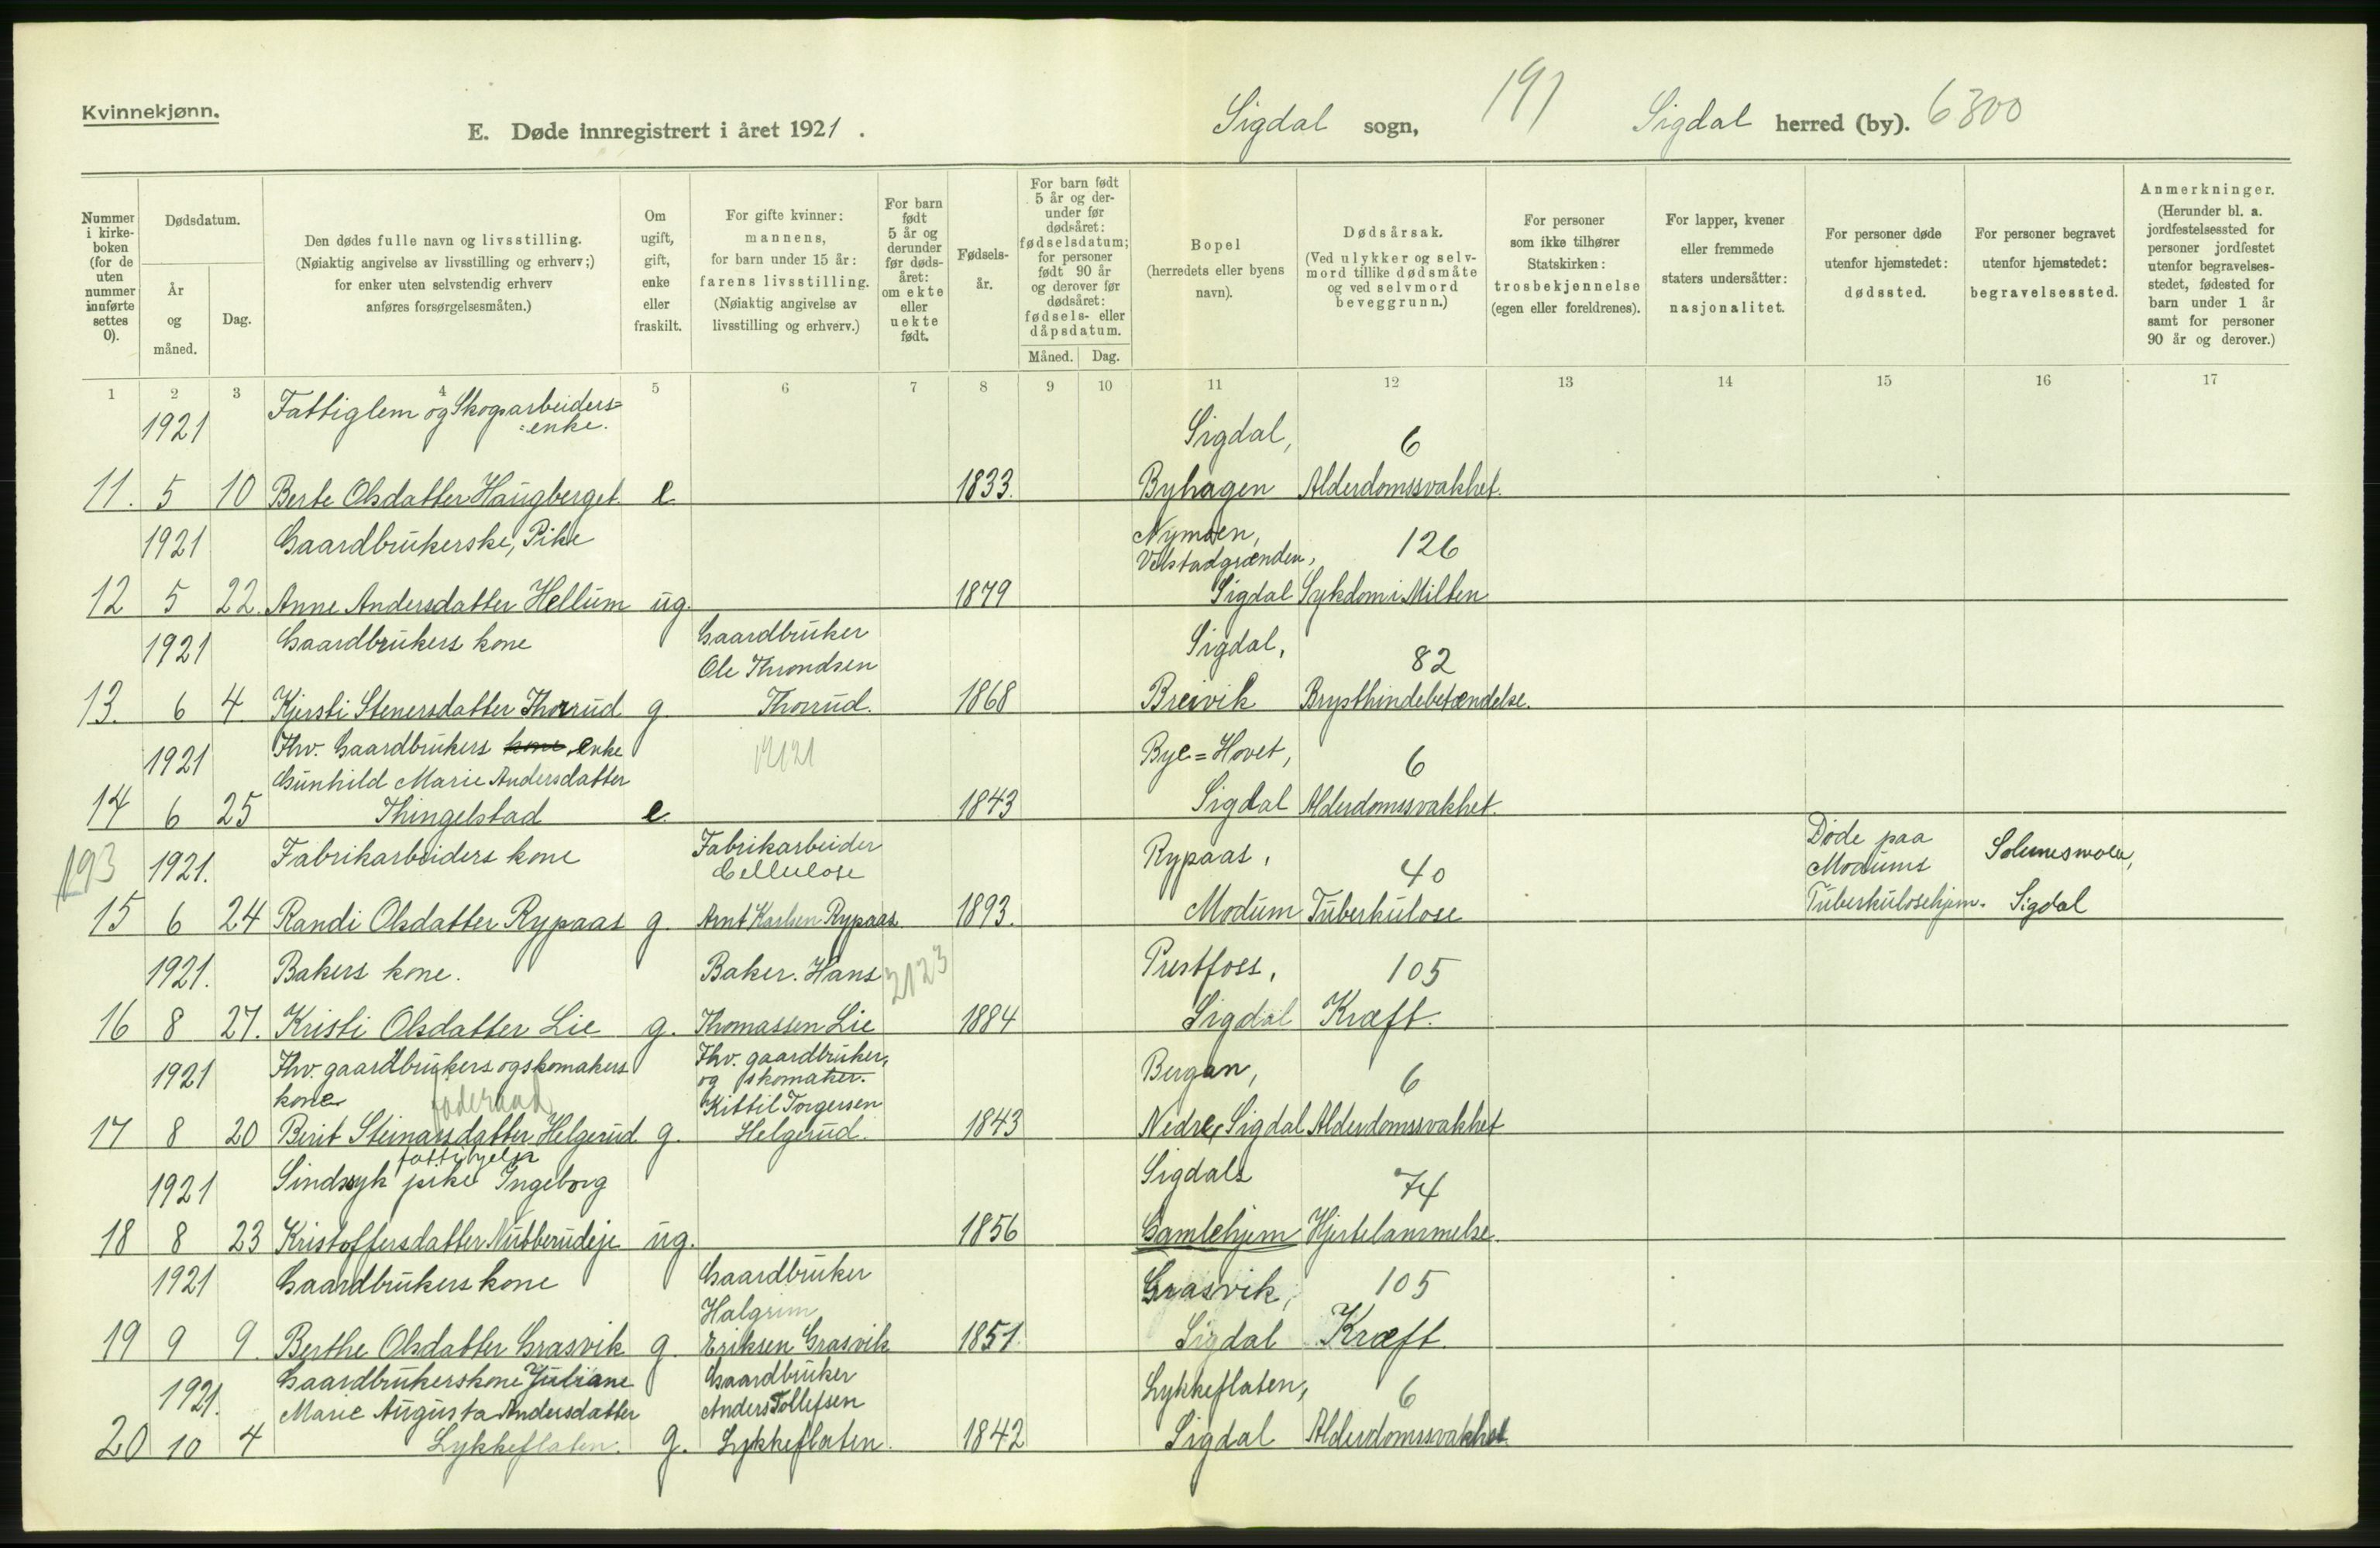 Kvinnekjønn.
E. Døde innregistrert i året 1921 .
Sigdal sogn,
191
Sigdal herred (by). 6300
Nummer i kirke-boken (for de uten nummer innførte settes 0).
Dødsdatum.
År og måned.
Dag.
Den dødes fulle navn og livsstilling.
(Nøiaktig angivelse av livsstilling og erhverv;)
for enker uten selvstendig erhverv
anføres forsørgelsesmåten.)
Om ugift, gift, enke eller fraskilt.
For gifte kvinner:
mannens,
for barn under 15 år:
farens livsstilling.
(Nøiaktig angivelse av
livsstilling og erhverv.)
For barn født 5 år og derunder før døds-året: om ekte eller uekte født.
Fødsels-år.
For barn født 5 år og der-under før dødsåret: fødselsdatum; for personer født 90 år og derover før dødsåret: fødsels- eller dåpsdatum.
Måned. Dag.
Bopel
(herredets eller byens
navn).
Dødsårsak.
(Ved ulykker og selv-
mord tillike dødsmåte
og ved selvmord
beveggrunn.)
For personer
som ikke tilhører
Statskirken:
trosbekjennelse
(egen eller foreldrenes).
For lapper, kvener
eller fremmede
staters undersåtter:
nasjonalitet.
For personer døde
utenfor hjemstedet:
dødssted.
For personer begravet
utenfor hjemstedet:
begravelsessted.
Anmerkninger.
(Herunder bl. a.
jordfestelsessted for
personer jordfestet
utenfor begravelses-
stedet, fødested for
barn under 1 år
samt for personer
90 år og derover.)
1 2 3 4 5 6 7 8 9 10 11 12 13 14 15 16 17
1921 Fattiglem og Skogsarbeiders=
=enke. Sigdal, 6
11. 5 10 Berte Olsdatter Haugberget e 1833. Byhagen Alderdomssvakhet.
1921 Gaardbrukerske, Pike Nymoen, 126
Velstadgrænden,
12 5 22. Anne Andersdatter Hellum ug. 1879 Sigdal Sykdom i Milten
1921 Gaardbrukers kone Gaardbruker Sigdal, 82
Ole Throndsen
13. 6 4. Kjersti Stenersdatter Thorrud g. Thorrud. 1868 Breivik Brysthindebetændelse.
1921 Fhv. Gaardbrukers kone enke Bye=Hovet, 6
Gunhild Marie Andersdatter
14 6 25 Thingelstad e. 1843 Sigdal Alderdomssvakhet.
193 1921. Fabrikarbeiders kone Fabrikarbeider Rypaas, 40 Døde paa
Cellulose Modums Solumsmoen,
15 6 24 Randi Olsdatter Rypaas g. Arnt Karlsen Rypaas 1893. Modum Tuberkulose Tuberkulosehjem. Sigdal
1921. Bakers kone. Baker. Hans 2123 Prestfoss, 105
16 8 27. Kristi Olsdatter Lie g. Thomassen Lie 1884 Sigdal Kræft.
1921 Fhv. gaardbrukers og skomakers Fhv. gaardbruker, Bergan, 6
kone føderaad og skomaker.
Kittil Torgersen
17 8 20 Berit Steinarsdatter Helgerud g. Helgerud. 1843 Nedre Sigdal Alderdomssvakhet
fattighjelp
1921 Sindssyk pike Ingeborg Sigdals 74
18 8 23 Kristoffersdatter Nubberudeje ug. 1856 Gamlehjem Hjertelammelse.
1921 Gaardbrukers kone Gaardbruker Grasvik, 105
Halgrim
19 9 9. Berthe Olsdatter Grasvik g. Eriksen Grasvik 1851. Sigdal Kræft.
1921. Gaardbrukerskone Juliane Gaardbruker Lykkeflaten, 6
Marie Augusta Andersdatter Anders Tollefsen
20 10 4 Lykkeflaten. g. Lykkeflaten. 1842 Sigdal Alderdomssvakhet.